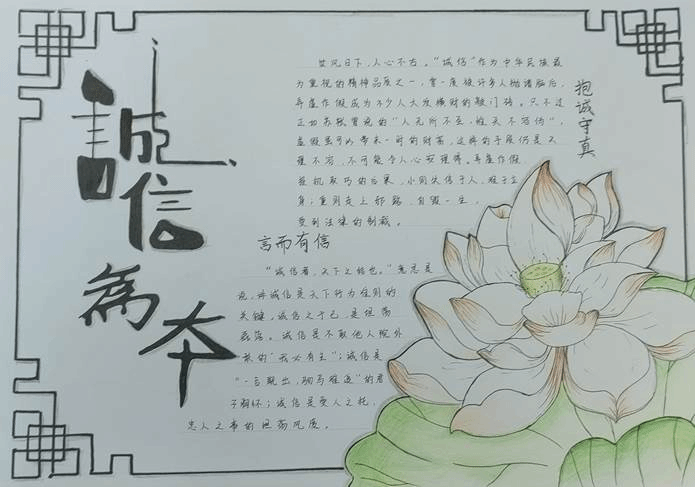 誠信為本
抱诚守真
世风日下，人心不古。“诚信”作为中华民族最
为重视的精神品质之一，曾一度被许多人抛诸脑后，
弄虚作假成为不少人大发横财的敲门砖。只不过
正如苏轼曾说的“人无所不至，惟天不容伪”，
虚假虽可以带来一时的财富，这样的手段仍是天
理不容，不可能令人心安理得。弄虚作假、
投机取巧的后果，小则失信于人，难于立
身；重则走上邪路，自毁一生，
受到法律的制裁。
言而有信
“诚信者，天下之结也。”意思是
说，讲诚信是天下行为准则的
关键，诚信之于己，是坦荡
磊落。诚信是不取他人院外
的“我心有主”；诚信是
“一言既出，驷马难追”的君
子胸怀；诚信是受人之托，
忠人之事的坦荡风度。